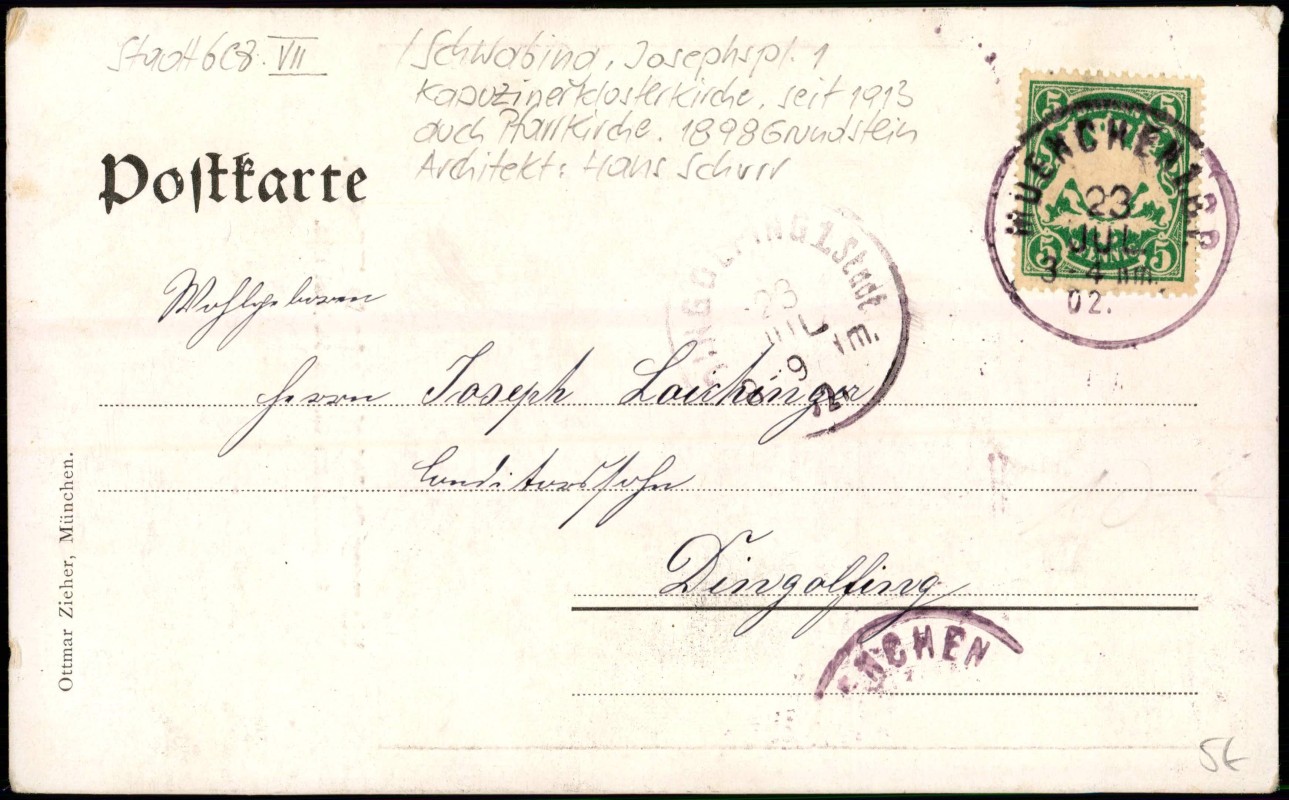 Stadtbez. VII / Schwabing, Josephspl. 1
Kapuzinerklosterkirche. seit 1913
auch Pfarrkirche. 1898 Grundstein
Architekt: Hans Schurr
Postkarte
5 5
MUENCHEN 1. B.P.
23
JUL
3-4 Nm.
02.
5 5
DINGOLFING 1. Stadt
23
JUL
8-9
Wohlgeboren
Herrn Joseph Laichinger
Conditorssohn
Dingolfing
ENCHEN
Ottmar Zieher, München.
5€